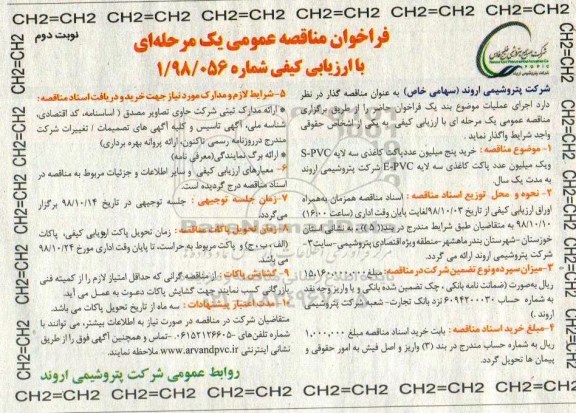 CH2=CH2 CH2=CH2 CH2=CH2 CH2=CH2 CH2=CH2 CH2=CH2
نوبت دوم
فراخوان مناقصه عمومی یک مرحله‌ای
با ارزیابی کیفی شماره ۱/۹۸/۰۵۶
شرکت پتروشیمی اروند (سهامی خاص) به عنوان مناقصه گذار در نظر
دارد اجرای عملیات موضوع بند یک فراخوان حاضر را از طریق برگزاری
مناقصه عمومی یک مرحله ای با ارزیابی کیفی، به یکی از اشخاص حقوقی
واجد شرایط واگذار نماید.
۱- موضوع مناقصه: خرید پنج میلیون عدد پاکت کاغذی سه لایه S-PVC
ویک میلیون عدد پاکت کاغذی سه لایه E-PVC شرکت پتروشیمی اروند
به مدت یک سال.
۲- نحوه و محل توزیع اسناد مناقصه: اسناد مناقصه همزمان به‌همراه
اوراق ارزیابی کیفی از تاریخ ۹۸/۱۰/۰۳ لغایت پایان وقت اداری (ساعت ۱۶:۰۰)
۹۸/۱۰/۱۰ به متقاضیان طبق شرایط مندرج در بند (۵)، به نشانی استان
خوزستان-شهرستان بندر ماهشهر-منطقه ویژه اقتصادی پتروشیمی-سایت ۳-
شرکت پتروشیمی اروند ارائه می گردد.
۳-میزان سپرده و نوع تضمین شرکت در مناقصه: مبلغ
ریال به‌صورت (ضمانت نامه بانکی، چک تضمین شده بانکی و یا واریز وجه نقد
به شماره حساب ۶۰۹۴۲۰۰۰۳۰ نزد بانک تجارت-شعبه شرکت پتروشیمی
اروند.)
۴-مبلغ خرید اسناد مناقصه: بابت خرید اسناد مناقصه مبلغ ۱,۰۰۰,۰۰۰
ریال به شماره حساب مندرج در بند (۳) واریز و اصل فیش به امور حقوقی و
پیمان ها تحویل گردد.
۵-شرایط لازم و مدارک مورد نیاز جهت خرید و دریافت اسناد مناقصه:
* ارائه مدارک ثبتی شرکت حاوی تصاویر مصدق (اساسنامه، کد اقتصادی،
شناسه ملی، آگهی تاسیس و کلیه آگهی های تصمیمات / تغییرات شرکت
مندرج درروزنامه رسمی تاکنون، ارائه پروانه بهره برداری)
* ارائه برگ نمایندگی(معرفی نامه)
۶- معیارهای ارزیابی کیفی و سایر اطلاعات و جزئیات مربوط به مناقصه در
اسناد مناقصه درج گردیده است.
۷-زمان جلسه توجیهی: جلسه توجیهی در تاریخ ۹۸/۱۰/۱۴ برگزار
می‌گردد.
۸- زمان تحویل پاکات مناقصه: زمان تحویل پاکت ارزیابی کیفی، پاکات
(الف، ب، ج) و پاکت مربوط به حراست، تا پایان وقت اداری مورخ ۹۸/۱۰/۲۴
می باشد.
۹- گشایش پاکات: از مناقصه گرانی که حداقل امتیاز لازم را از کمیته فنی
بازرگانی کسب نمایند جهت گشایش پاکات دعوت به عمل می آید.
۱۰-مدت اعتبار پیشنهادات: سه ماه از تاریخ تحویل پاکات می باشد.
متقاضیان شرکت در مناقصه در صورت نیاز به اطلاعات بیشتر، می توانند با
شماره تلفن‌های ۰۶۱۵۲۱۲۶۶۰۵- تماس و همچنین آگهی فوق را از طریق
نشانی اینترنتی www.arvandpvc.ir ملاحظه نمایند.
روابط عمومی شرکت پتروشیمی اروند
CH2=CH2 CH2=CH2 CH2=CH2 CH2=CH2 CH2=CH2 CH2=CH2